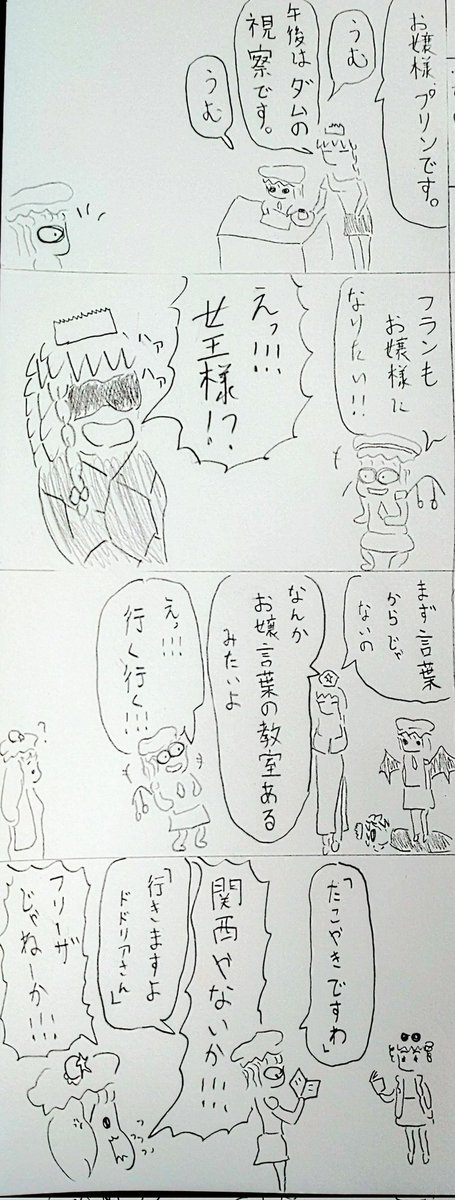 お嬢様、プリンです。
うむ
午後はダムの
視察です。
うむ
フランも
お嬢様に
なりたい!!
えっ!!!
女王様!?
ハァ
ハァ
まず言葉
からじゃ
ないの
なんか
お嬢言葉の教室ある
みたいよ
えっ!!!
行く行く!!!
?
「たこやきですわ」
関西やないか!!!
「行きますよ
ドドリアさん」
フリーザ
じゃねーか!!!